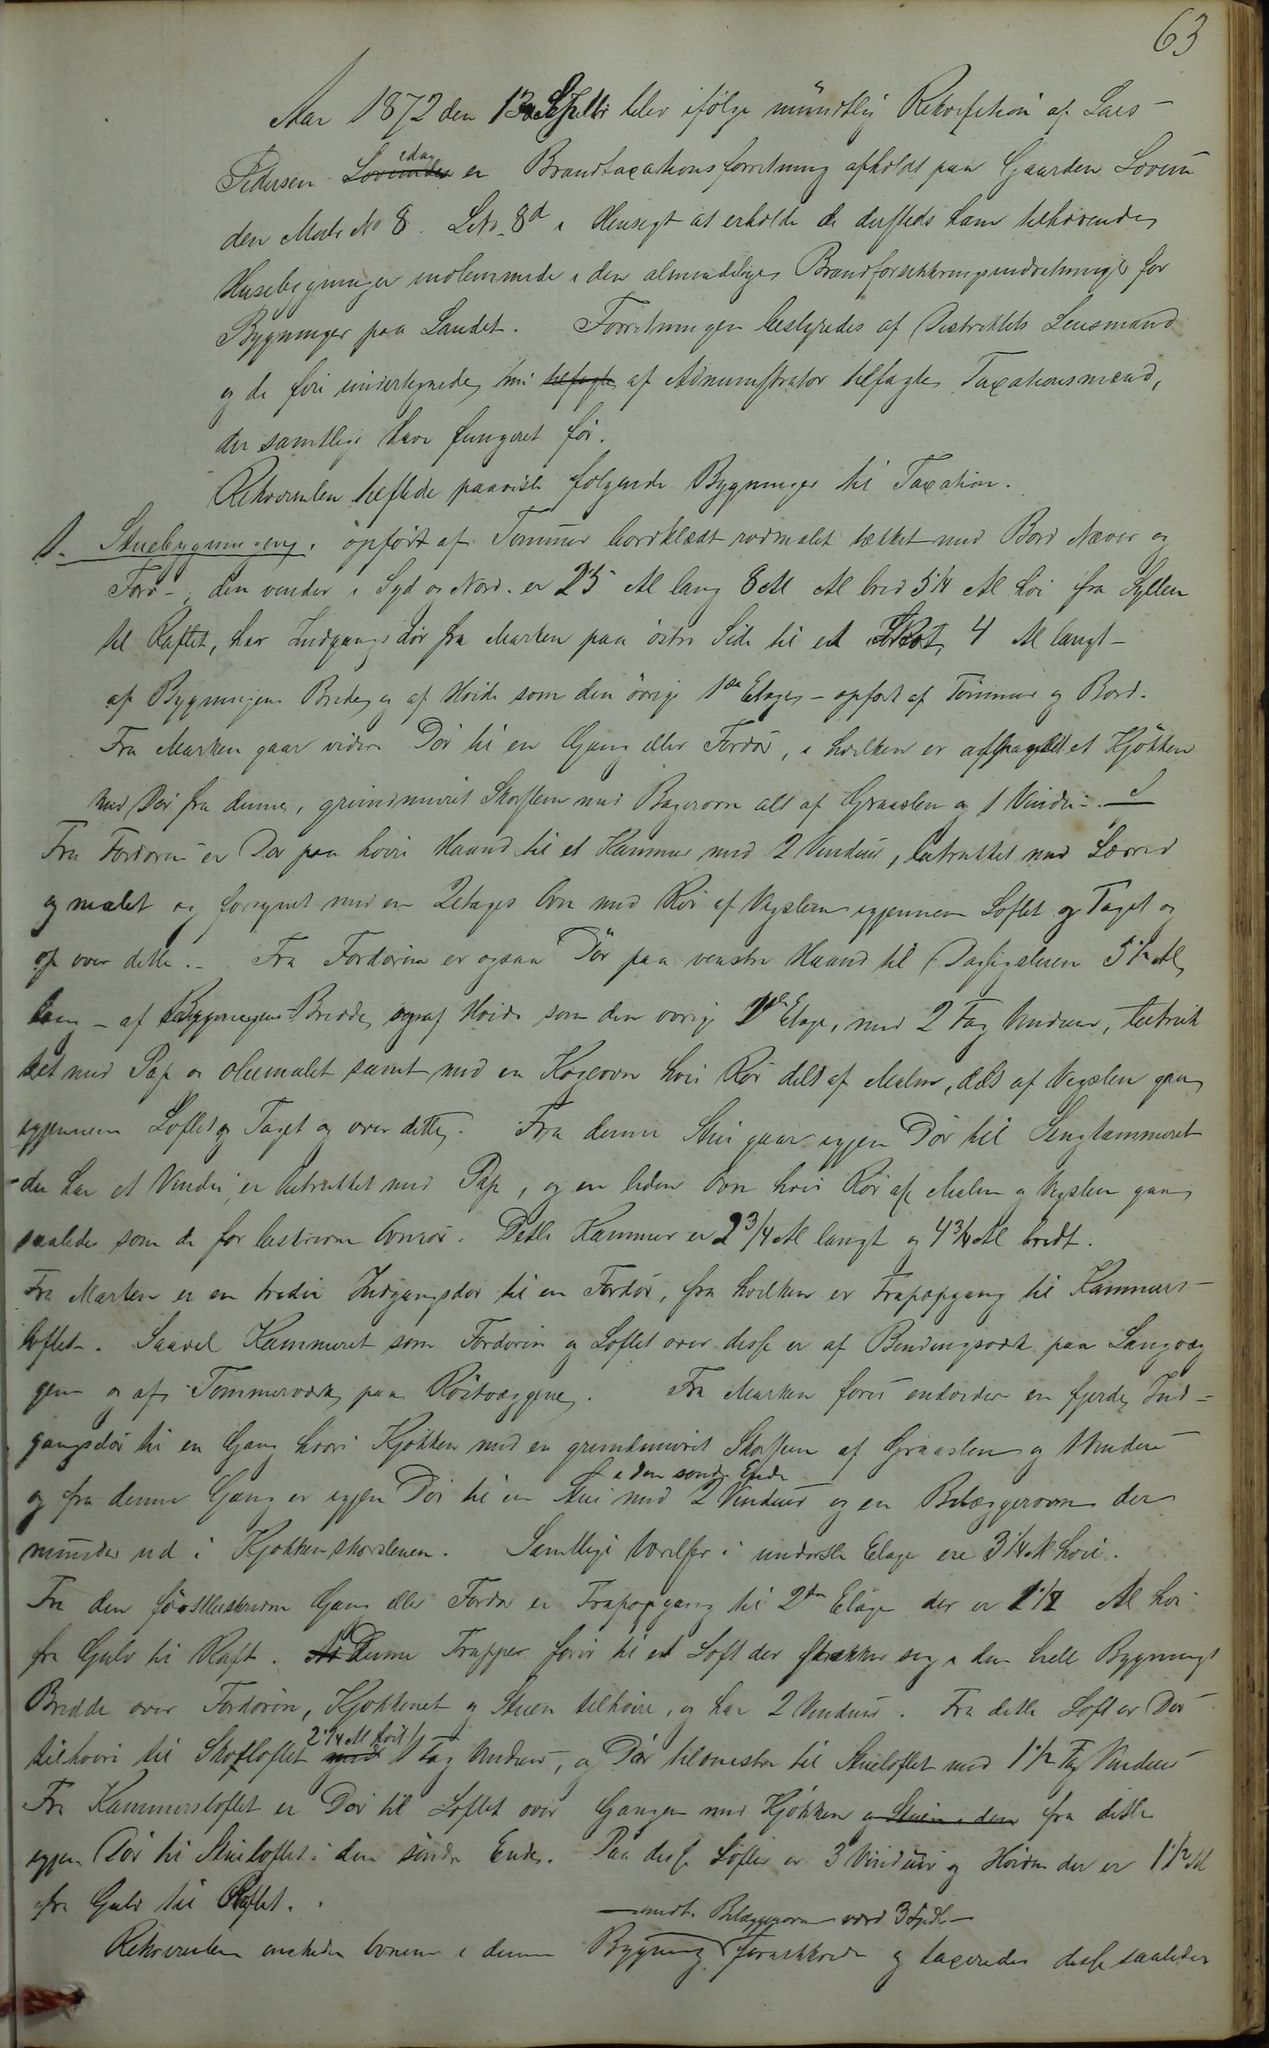 63
Aar 1872 den 13de Septbr blev ifølge mündtlig Rekvisition af Lars
Pedersen Lovunden idag en Brandtaxationsforretning afholdt paa Gaarden Lovun
den Matr No 8. LNo. 8d i Hensigt at erholde de dersteds ham tilhørende
Husebygninger indlemmede i den almindelige Brandforsikkringsindretning for
Bygninger paa Landet. Forretningen bestyredes af Distriktets Lensmand
og de fire undertegnede, tilsagte af Administrator tilsagte Taxationsmænd,
der samtlige have fungeret før.
Rekvirenten tilstede paaviste følgende Bygninger til Taxation.
1. Stuebygningen, opført af Tømmer bordklædt rødmalet tækket med Bord Næver og
Torv - den vender i Syd og Nord. er 25 Al lang 8 Al Al bred 5 1/4 Al høi fra Syllen
til Raftet, har Indgangsdør fra Marken paa østre Side til et 4 Al langt -
af Bygningens Bredde og af Høide som den øvrige 1ste Etage - opført af Tømmer og Bord.
Fra Marken gaar videre Dør til en Gang eller Fordør, i hvilken er afpanelet et Kjøkken
med Dør fra denne, grundmuret Skorsten med Bagerovn alt af Graasten og 1 Vindu
Fra Fordøren er Dør paa høire Haand til et Kammer med 2 Vinduer, betrukket med Lærred
og malet og forsynet med en 2etages Ovn med Rør af Vegsten igjennem Loftet og Taget og
op over dette. - Fra Fordøren er ogsaa Dør paa venstre Haand til Dagligstuen 5 1/2 Al
lang - af Bygningens Bredde og af Høide som den øvrige 1ste Etage, med 2 Fag Vinduer, betruk
ket med Pap og oliemalet samt med en Kogeovn hvis Rør dels af Malm, dels af Vegsten gaar
igjennem Loftet og Taget og over dette. Fra denne Stue gaar igjen Dør til Sengkammeret
der har et Vindu, er betrukket med Pap, og en liden Ovn hvis Rør af Malm og Vegsten gaar
saaledes som de før beskrevne Ovnrør. Dette Kammer er 2 3/4 Al langt og 4 3/4 Al bredt.
Fra Marken er en tredie Indgangsdør til en Fordør, fra hvilken er Trapopgang til Kammers-
loftet. Saavel Kammeret som Fordøren og Loftet over disse er af Bindingsværk paa Langvæg
gene og af Tømmerværk paa Røstvæggene. Fra Marken fører endvidere en fjerde Ind-
gangsdør til en Gang hvori Kjøkken med en grundmuret Skorsten af Graasten og 1 Vindue
og fra denne Gang er igjen Dør til en Stue i den søndre Ende med 2 Vinduer og en Bilæggerovn der
munder ud i Kjøkkenskorstenen. Samtlige Værelser i underste Etage ere 3 1/4 Al høie.
Fra den førstbeskrevne Gang eller Fordør er Trapopgang til 2den Etage der er 1 1/2 Al høi
fra Gulv til Raft. Denne Trappe fører til et Loft der strækker sig i den hele Bygnings
Bredde over Fordøren, Kjøkkenet og Stuen tilhøire, og har 2 Vinduer. Fra dette Loft er Dør
tilhøire til Skotloftet 2 1/4 Al høit med 1 Fag Vinduer, og Dør tilvenstre til Stueloftet med 1 1/2 Fag Vinduer
Fra Kammersloftet er Dør til Loftet over Gangen med Kjøkken og Stuen i den fra dette
igjen Dør til Stueloftet i den søndre Ende. Paa disse Lofter er 3 Vinduer og Høiden der er 1 1/2 Al
fra Gulv til Raftet.
Rekvirenten ønskede Ovnene i denne Bygning undt. Bilæggerovn værd 3 Spdl forsikkrede og taxeredes disse saaledes